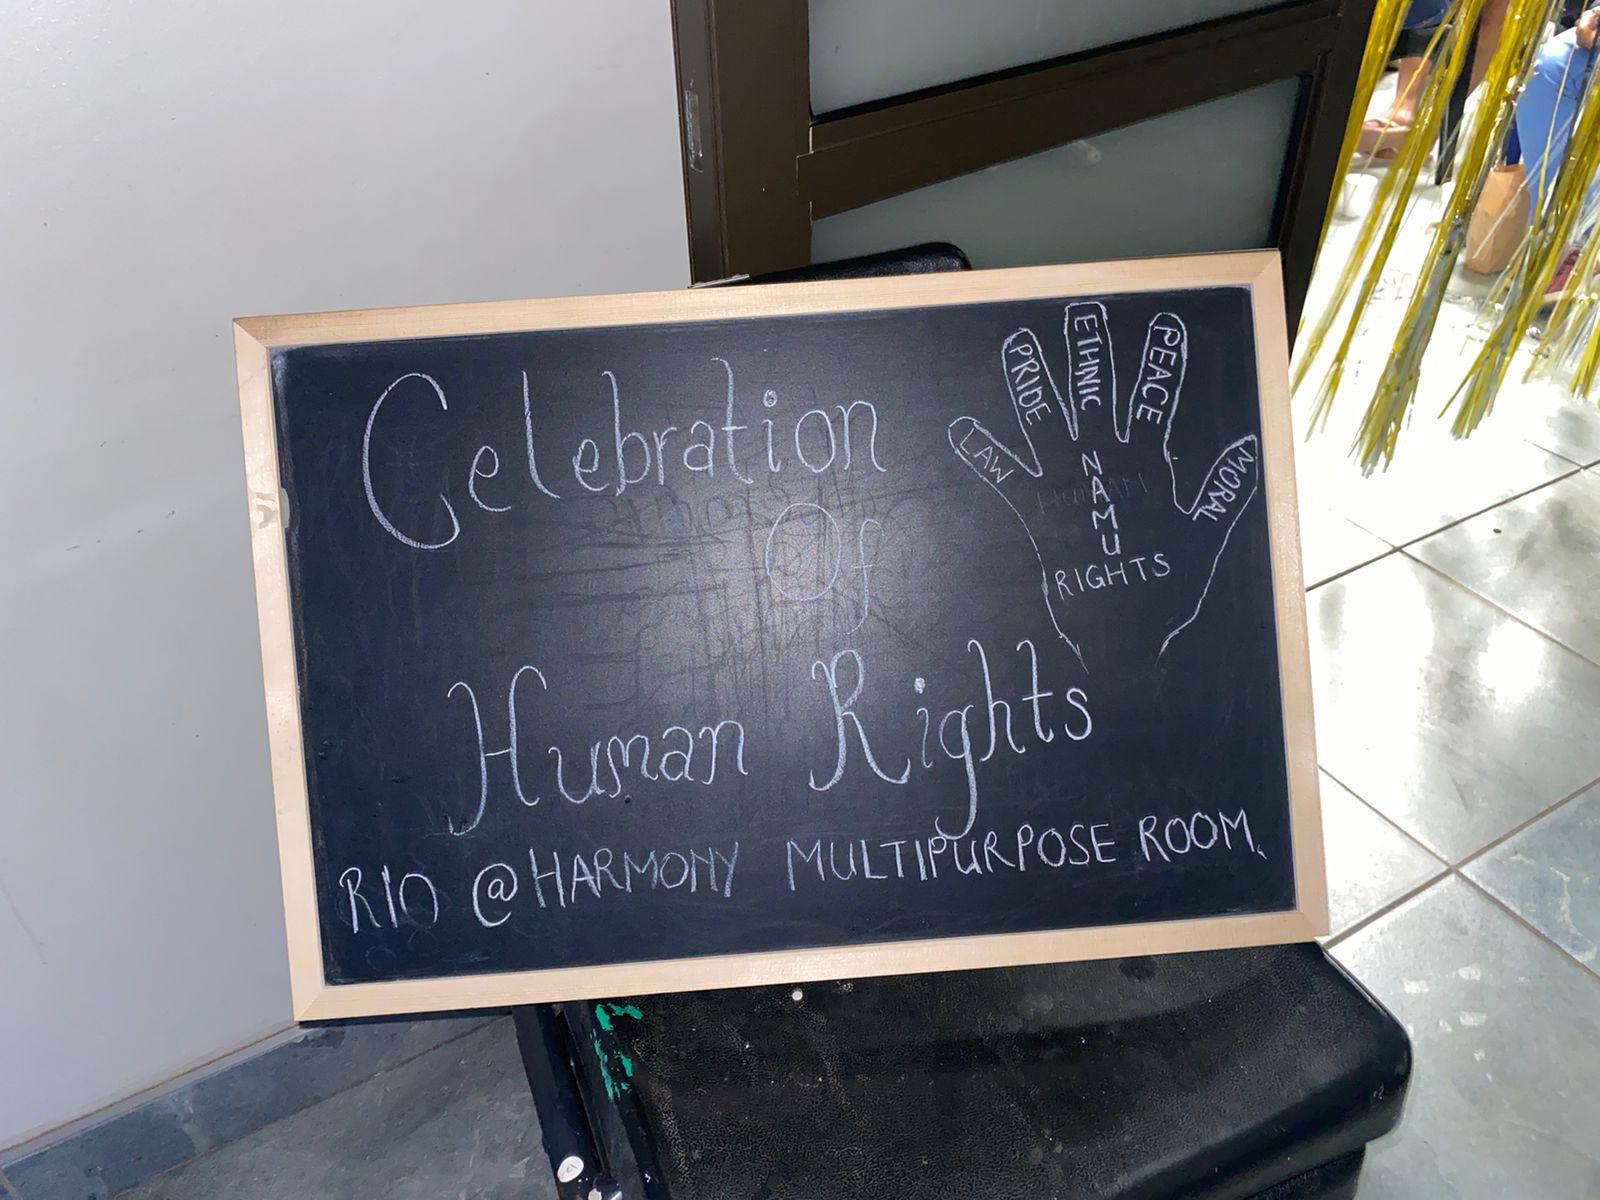 Celebration
Of
Human Rights
RIO @HARMONY MULTIPURPOSE ROOM.
LAW
PRIDE
ETHNIC
PEACE
MORAL
NAMU
HUMAN
RIGHTS